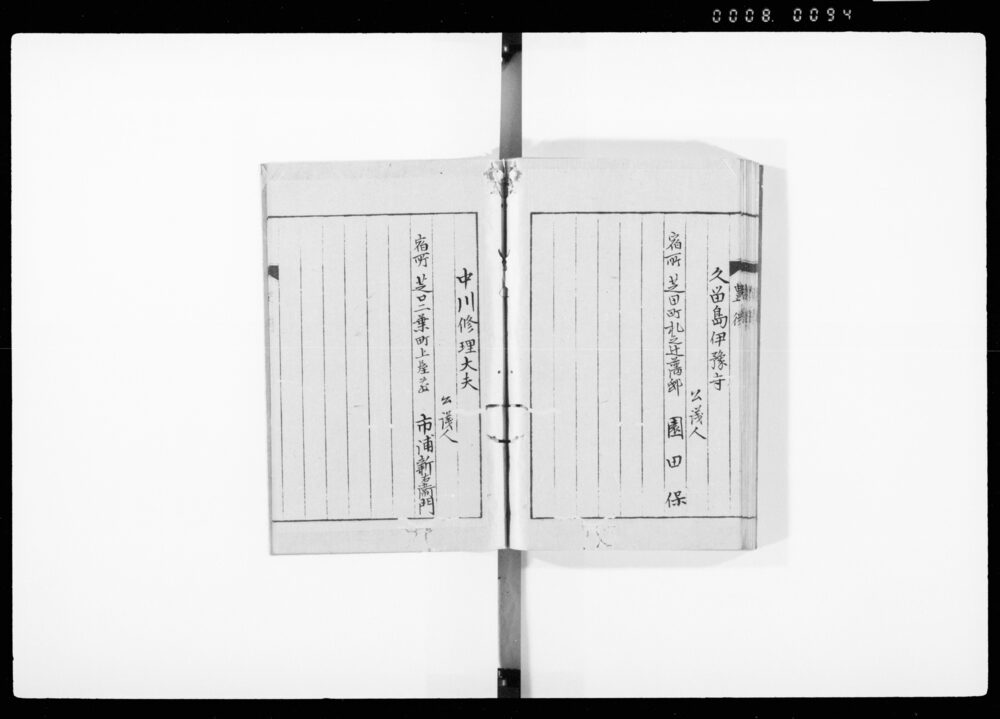 0008. 0094
久留島伊豫守
公議人
宿所 芝田町札之辻藩邸 園田保
中川修理大夫
公議人
宿所 芝口二葉町上屋敷 市浦新右衛門